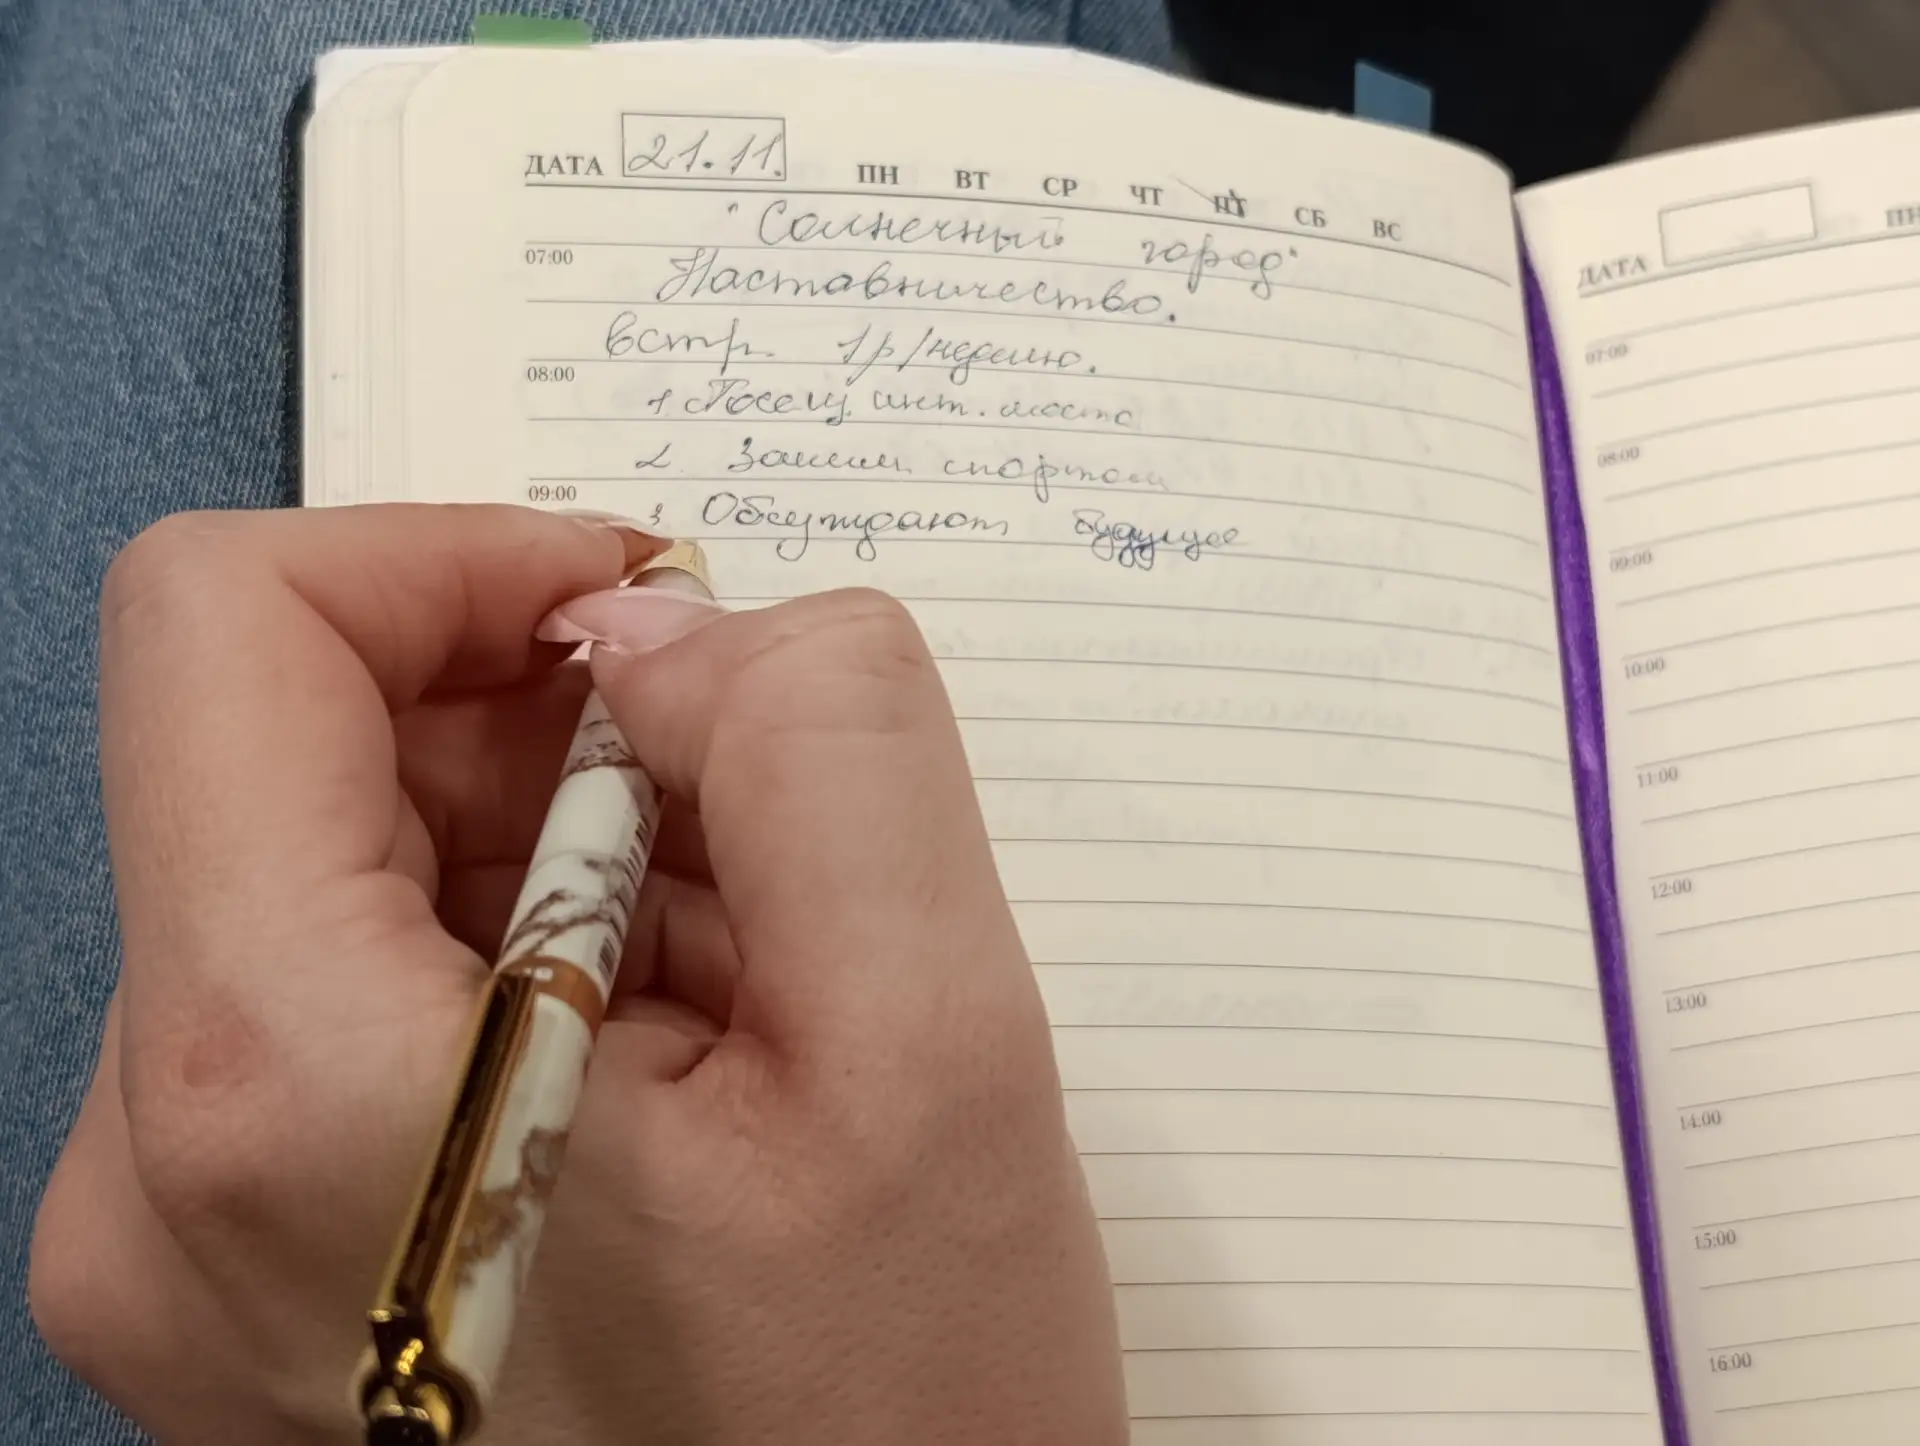 ДАТА 21.11. ПН ВТ СР ЧТ ПТ СБ ВС
"Солнечный город"
07:00
Наставничество.
встр. 1р/неделю.
08:00
1 Посещ. инт. места
2. Заним. спортом
09:00
3 Обсуждают будущее
ДАТА ПН
07:00
08:00
09:00
10:00
11:00
12:00
13:00
14:00
15:00
16:00